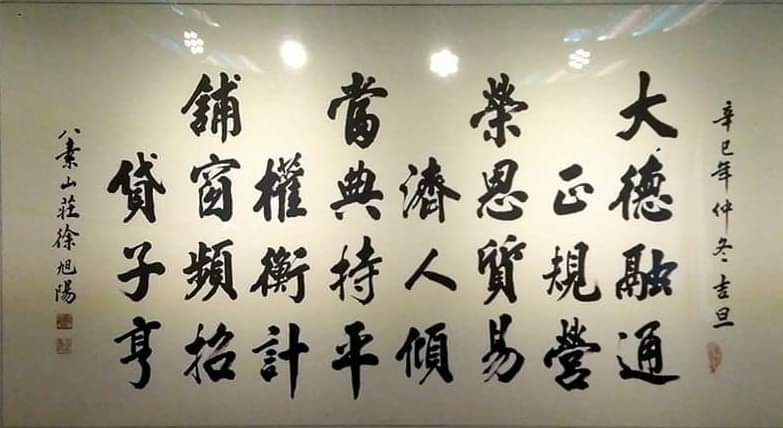 辛巳年仲冬吉旦
大德融通
正規營
榮恩質易
濟人傾
當典持平
權衡計
舖窗頻招
貸子亨
八素山莊徐旭陽